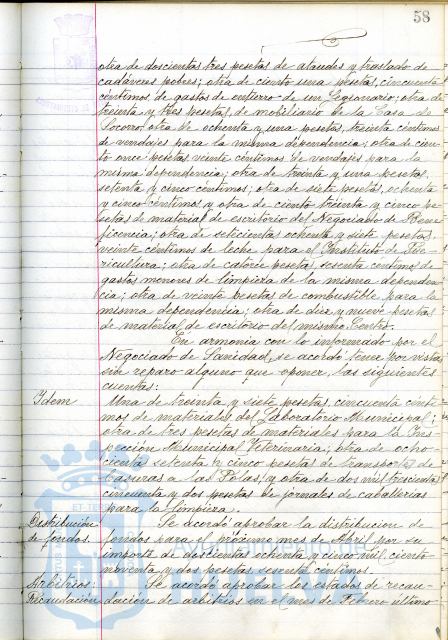 58
otra de doscientas tres pesetas de ataudes y traslado de
cadáveres pobres; otra de ciento una pesetas, cincuenta
céntimos de gastos de entierro de un Legionario; otra de
treinta y tres pesetas, de mobiliario de la Casa de
Socorro; otra de ochenta y una pesetas, treinta céntimos
de vendajes para la misma dependencia; otra de cien-
to once pesetas veinte céntimos de vendajes para la
misma dependencia; otra de treinta y una pesetas,
setenta y cinco céntimos; otra de siete pesetas, ochenta
y cinco céntimos y otra de ciento treinta y cinco pe-
setas de material de escritorio del Negociado de Bene-
ficencia; otra de setecientas ochenta y siete pesetas
veinte céntimos de leche para el Instituto de Pue-
ricultura; otra de catorce pesetas, sesenta céntimos de
gastos menores de limpieza de la misma dependen-
cia; otra de veinte pesetas de combustible para la
misma dependencia; otra de diez y nueve pesetas
de material de escritorio del mismo Centro.
En armonia con lo informado por el
Negociado de Sanidad, se acordó tener por vistas
sin reparo alguno que oponer, las siguientes
cuentas:
Idem Una de treinta y siete pesetas, cincuenta cénti-
mos de materiales del Laboratorio Municipal;
otra de tres pesetas de materiales para la Ins-
pección Municipal Veterinaria; otra de ocho-
cientas setenta y cinco pesetas de transportes de
basuras a las Polas, y otra de dos mil trescientas
cincuenta y dos pesetas de jornales de caballerias
para la limpieza.
Distribución Se acordó aprobar la distribución de
de fondos. fondos para el próximo mes de Abril por su
importe de doscientas ochenta y cinco mil ciento
noventa y dos pesetas sesenta céntimos.
Arbitrios: Se acordó aprobar los estados de recau-
Recaudación dación de arbitrios en el mes de Febrero último